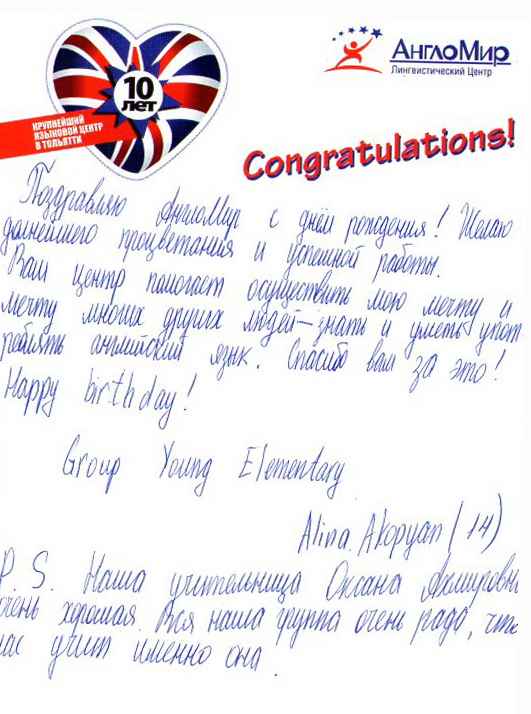 10
ЛЕТ
КРУПНЕЙШИЙ
ЯЗЫКОВОЙ ЦЕНТР
В ТОЛЬЯТТИ
АнглоМир
Лингвистический Центр
Congratulations!
Поздравляю АнглоМир с днём рождения! Желаю
дальнейшего процветания и успешной работы.
Ваш центр помогает осуществить мою мечту и
мечту многих других людей – знать и уметь упот
реблять английский язык. Спасибо вам за это!
Happy birthday!
Group Young Elementary
Alina Akopyan (14)
P. S. Наша учительница Оксана
очень хорошая. Вся наша группа очень рада, что
нас учит именно она.